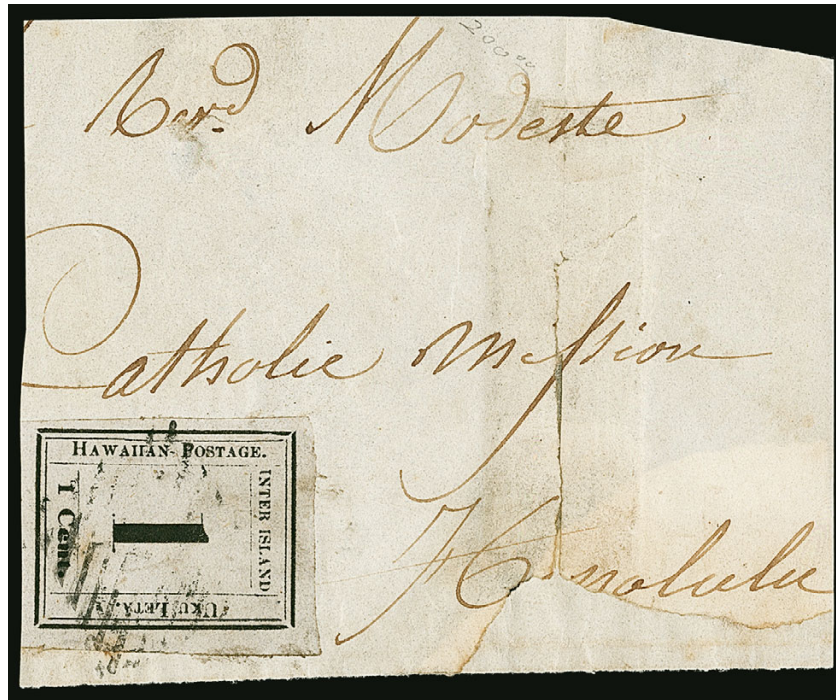 200.00
Revd. Modeste
Catholic Mission
Honolulu
HAWAIIAN POSTAGE.
INTER ISLAND
UKU LETA.
1 Cent.
1